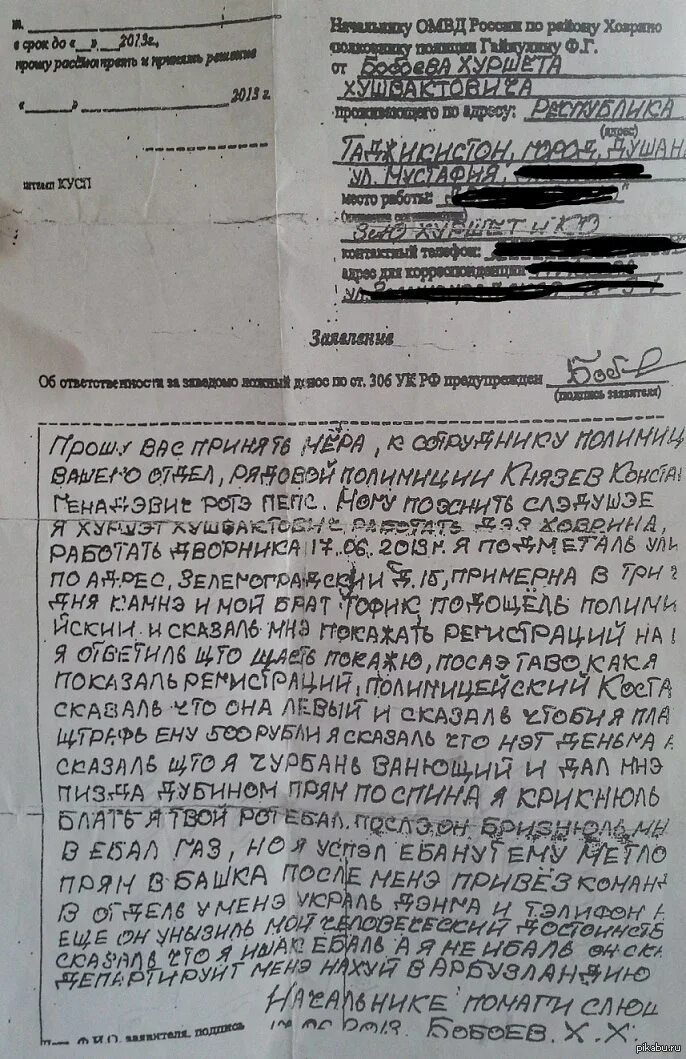 в срок до «__» ____2013г.,
прошу рассмотреть и принять решение
«______»____________2013 г.
штамп КУСП
Начальнику ОМВД России по району Ховрино
полковнику полиции Гайнулину Ф.Г.
от Бобоева ХУРШЕТА
ХУШВАКТОВИЧА
проживающего по адресу: РЕСПУБЛИКА
(адрес)
ТАДЖИКИСТОН, ГОРОД, ДУШАН
УЛ. МУСТАФИЯ,
место работы:
Зею ХУРШЕТ и КО
контактный телефон:
адрес для корреспонденции
ул.
Заявление
Об ответственности за заведомо ложный донос по ст. 306 УК РФ предупрежден Боб
(подпись заявителя)
ПРОШУ ВАС ПРИНЯТЬ МЁРА, К СОТРУДНИКУ ПОЛИМИЦ
ВАШЕГО ОТДЕЛ, РЯДОВОЙ ПОЛИМИЦИИ КНЯЗЕВ КОНСТА
ГЕНАДЭВИС РОТЭ ПЕПС. МОГУ ПОЭСНИТЬ СЛЭДУШЭЕ
Я ХУРШЭТ ХУШВАКТОВИС РАБОТАТЬ ДЭЗ ХОВРИНА,
РАБОТАТЬ ДВОРНИКА 17.06.2013 г. Я ПОДМЕТАЛЬ УЛИ
ПО АДРЕС, ЗЕЛЕНОГРАДСКИЙ Д.15, ПРИМЕРНА В ТРИ
ДНЯ КАМНЭ И МОЙ БРАТ ТОФИК, ПОДОЩЁЛЬ ПОЛИМИ
ЙСКИЙ И СКАЗАЛЬ МНЭ ПОКАЖАТЬ РЕГИСТРАЦИЙ НА
Я ОТВЕТИЛЬ ЩТО ЩАСТЬ ПОКАЖЮ, ПОСАЭ ТАВО КАК Я
ПОКАЗАЛЬ РЕГИСТРАЦИЙ, ПОЛИМИЦЕЙСКИЙ КОСТА
СКАЗАЛЬ ЧТО ОНА ЛЕВЫЙ И СКАЗАЛЬ ЧТОБИ Я ПЛА
ЩТРАФЬ ЕНУ 500 РУБЛИ Я СКАЗАЛЬ ЧТО НЭТ ДЕНЬГА
СКАЗАЛЬ ЩТО Я ЧУРБАНЬ ВАНЮЩИЙ И ДАЛ МНЭ
ПИЗДА ДУБИНОМ ПРЯМ ПО СПИНА Я КРИКНЮЛЬ
БЛАТЬ Я ТВОЙ РОТ ЕБАЛ. ПОСЛЭ ОН БРИЗНЮЛЬ МН
В ЕБАЛ ГАЗ, НО Я УСПЭЛ ЕБАНУТ ЕМУ МЕТЛО
ПРЯМ В БАШКА ПОСЛЕ МЕНЭ ПРИВЁЗ КОМАН
В ОТДЕЛЬ У МЕНЭ УКРАЛЬ ДЭНГА И ТЭЛИФОН
ЕЩЕ ОН УНЫЗИЛЬ МОЙ ЧЕЛОВЕЧЕСКИЙ ДОСТОИНСТВ
СКАЗАЛЬ ЧТО Я ИШАК ЕБАЛЬ А Я НЕ ИБАЛЬ ОН СКА
ДЕПАРТИРУИТ МЕНЭ НАХУЙ В АРБУЗЛАНДИЮ
НАЧАЛЬНИКЕ ПОМАГИ СЛЮШ
Ф.И.О. заявителя, подпись 2013. БОБОЕВ. Х. Х.
pikabu.ru